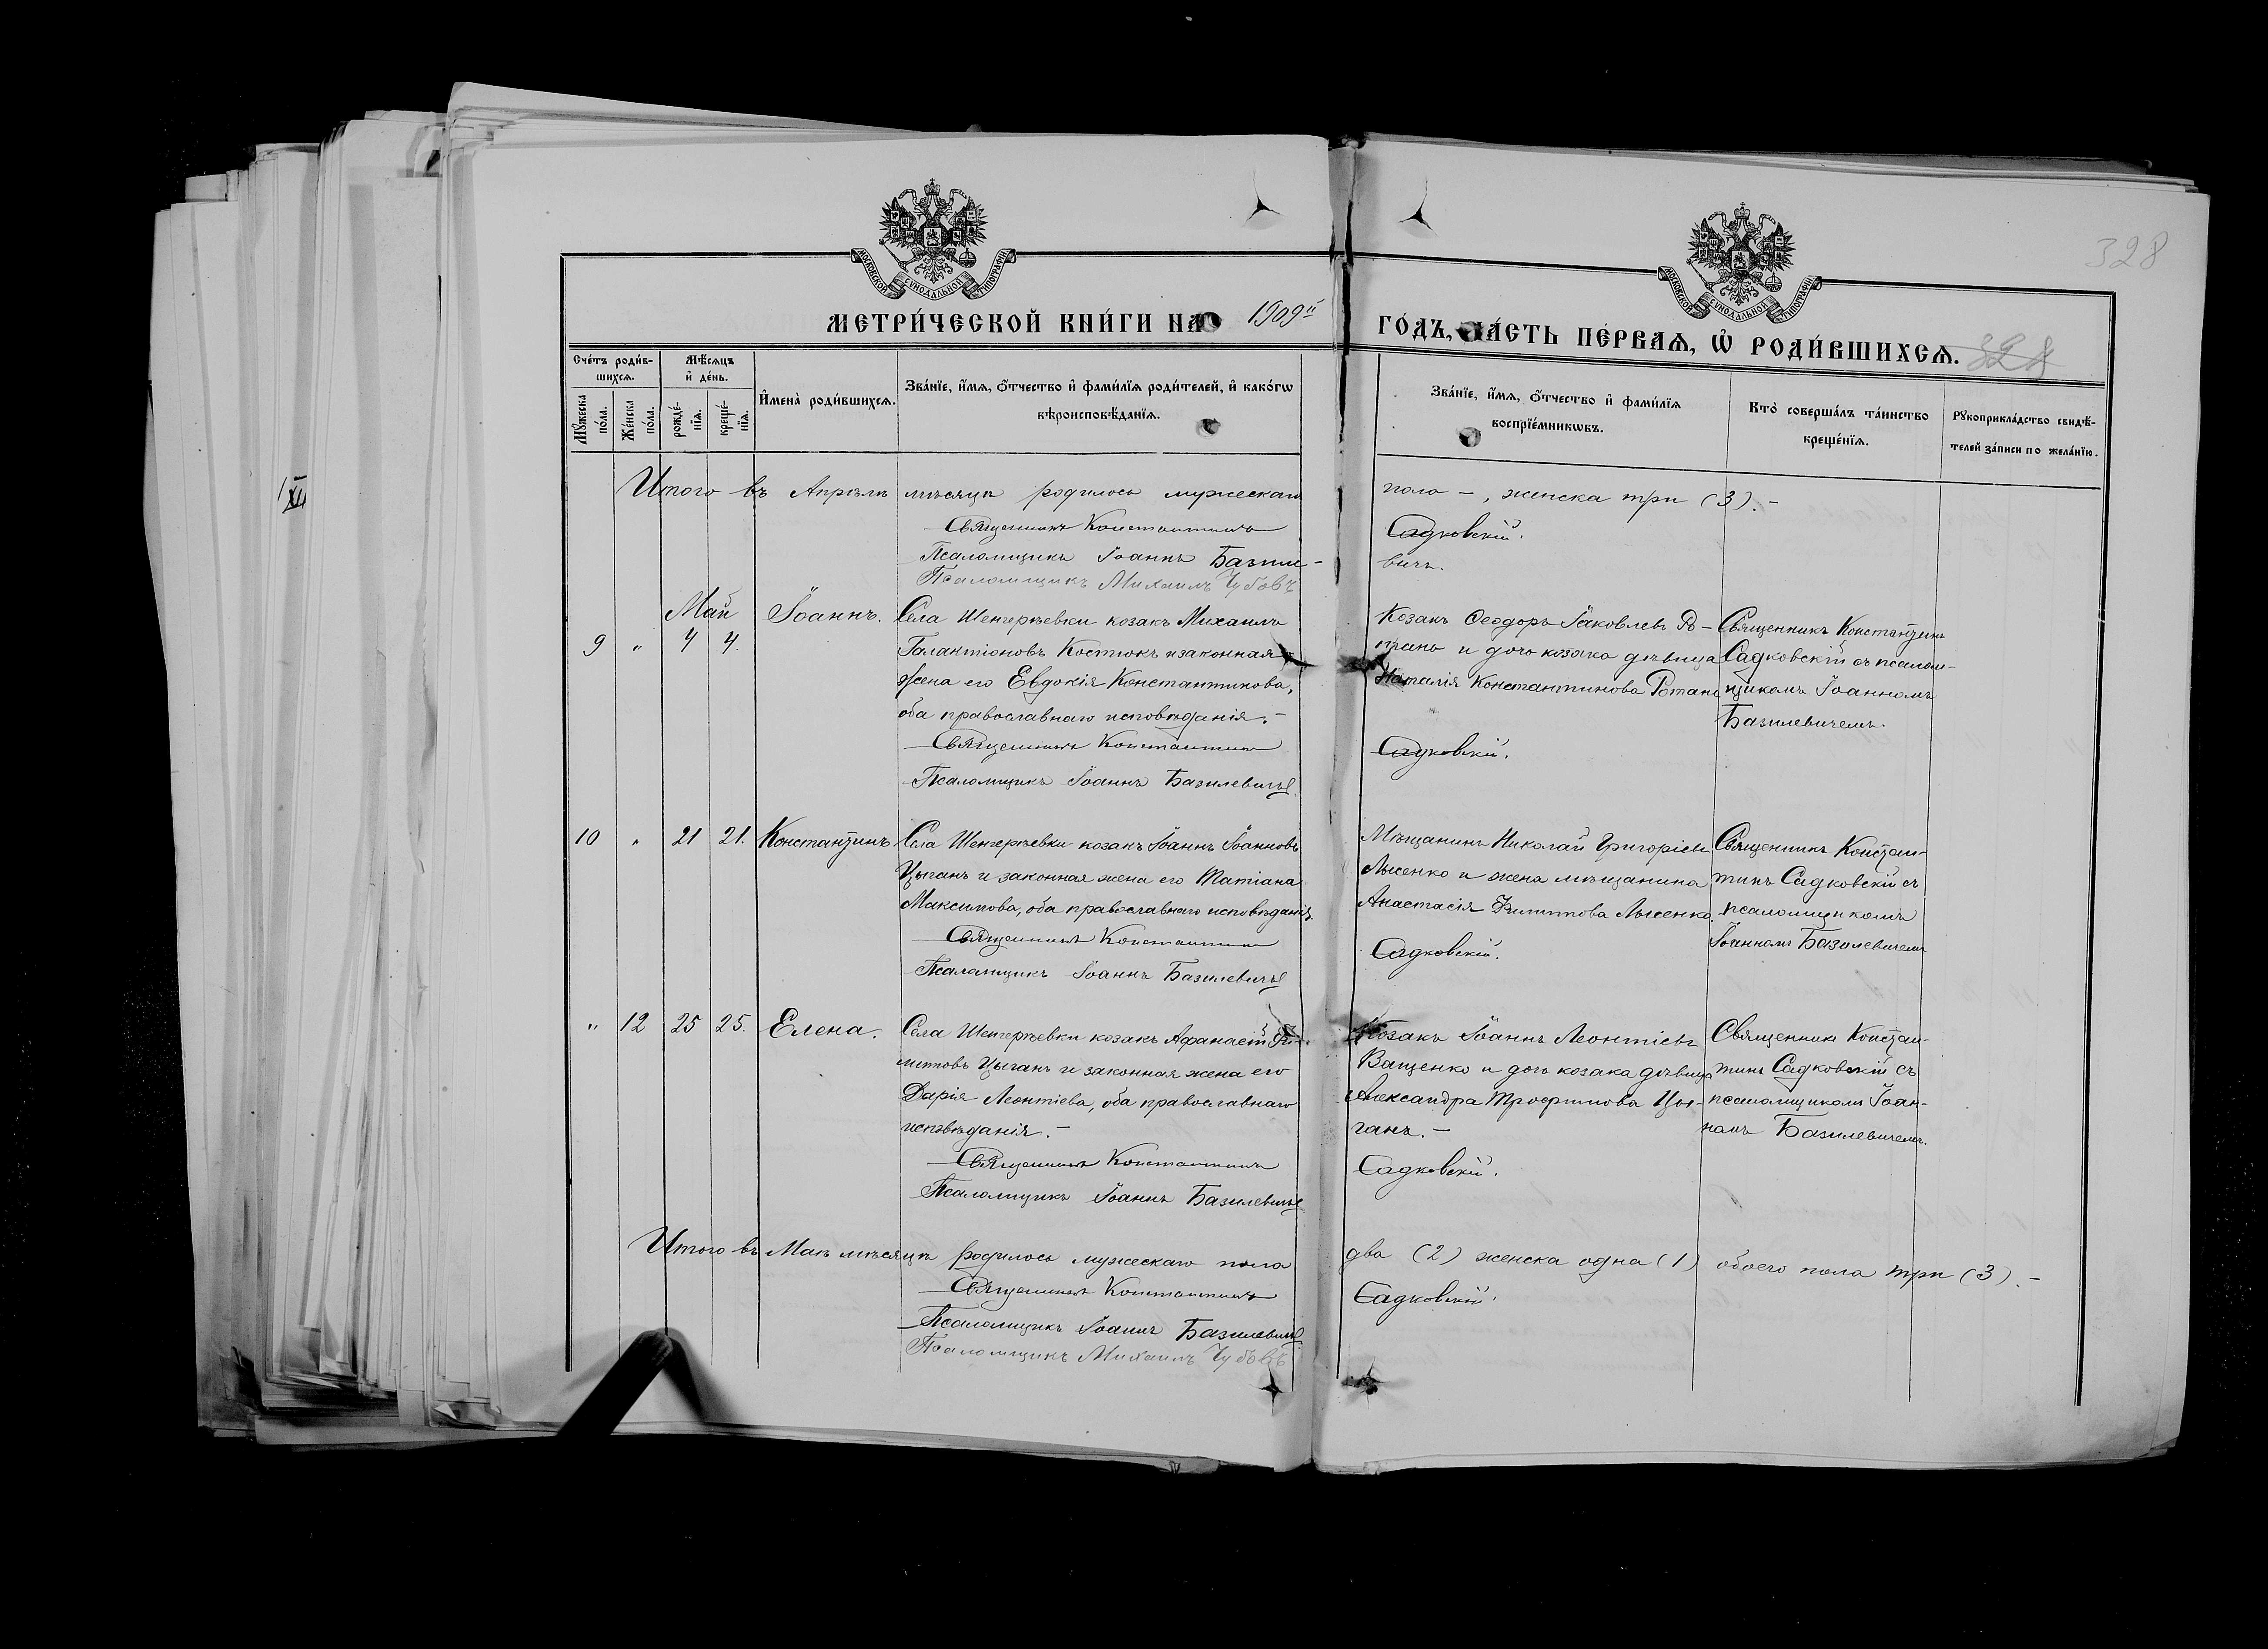 МОСКОВСКОЙ СѴНОДАЛЬНОЙ ТИПОГРАФІИ
МОСКОВСКОЙ СѴНОДАЛЬНОЙ ТИПОГРАФІИ
328
МЕТРИ́ЧЕСКОЙ КНИ́ГИ НА 1909й
ГО́ДЪ, ЧА́СТЬ ПЕ́РВАѦ, Ѡ҆ РОДИ́ВШИХСѦ.
Сче́тъ роди́в-
шихсѧ.
Мѣ́сѧцъ
и҆ де́нь.
Мꙋ́жеска
по́ла.
Же́нска
по́ла.
рожде́-
нїѧ.
креще́-
нїѧ.
И҆мена̀ роди́вшихсѧ.
Зва́нїе, и҆́мѧ, ѻ҆́тчество и҆ фами́лїѧ роди́телей, и҆ како́гѡ
вѣроисповѣ́данїѧ.
Зва́нїе, и҆́мѧ, ѻ҆́тчество и҆ фами́лїѧ
воспрїе́мникѡвъ.
Кто̀ соверша́лъ та́инство
креще́нїѧ.
Рꙋкоприкла́дство свидѣ́-
телей за́писи по жела́нїю.
Итого въ Апрѣлѣ мѣсяцѣ родилось мужескаго
пола - , женска три (3). -
Священникъ Константинъ
Садковскій.
Псаломщикъ Іоаннъ Базиле-
вичъ.
Псаломщикъ Михаилъ Чубовъ
Май
9 " 4 4. Іоаннъ.
Села Шенгерѣевки козакъ Михаилъ
Галактіоновъ Костюкъ и законная
жена его Евдокія Константинова,
оба православнаго исповѣданія. -
Священникъ Константинъ
Псаломщикъ Іоаннъ Базилевичъ
Козакъ Ѳеодоръ Іаковлевъ Ро-
тань и дочь козака дѣвица
Наталія Константинова Ротань
Садковскій.
Священникъ Константинъ
Садковскій съ псалом-
щикомъ Іоанномъ
Базилевичемъ.
10 " 21 21. Константинъ
Села Шенгерѣевки козакъ Іоаннъ Іоанновъ
Цыганъ и законная жена его Татіана
Максимова, оба православнаго исповѣданія.
Священникъ Константинъ
Псаломщикъ Іоаннъ Базилевичъ
Мѣщанинъ Николай Григоріевъ
Лысенко и жена мѣщанина
Анастасія Филиппова Лысенко.
Садковскій.
Священникъ Констан-
тинъ Садковскій съ
псаломщикомъ
Іоанномъ Базилевичемъ
" 12 25 25. Елена.
Села Шенгерѣевки козакъ Афанасій Фи-
липповъ Цыганъ и законная жена его
Дарія Леонтіева, оба православнаго
исповѣданія. -
Священникъ Константинъ
Псаломщикъ Іоаннъ Базилевичъ
Козакъ Іоаннъ Леонтіевъ
Ващенко и дочь козака дѣвица
Александра Трофимова Цы-
ганъ. -
Садковскій.
Священникъ Констан-
тинъ Садковскій съ
псаломщикомъ Іоан-
номъ Базилевичемъ.
Итого въ Маѣ мѣсяцѣ родилось мужескаго пола
два (2) женска одна (1) обоего пола три (3). -
Священникъ Константинъ
Садковскій.
Псаломщикъ Іоаннъ Базилевичъ
Псаломщикъ Михаилъ Чубовъ